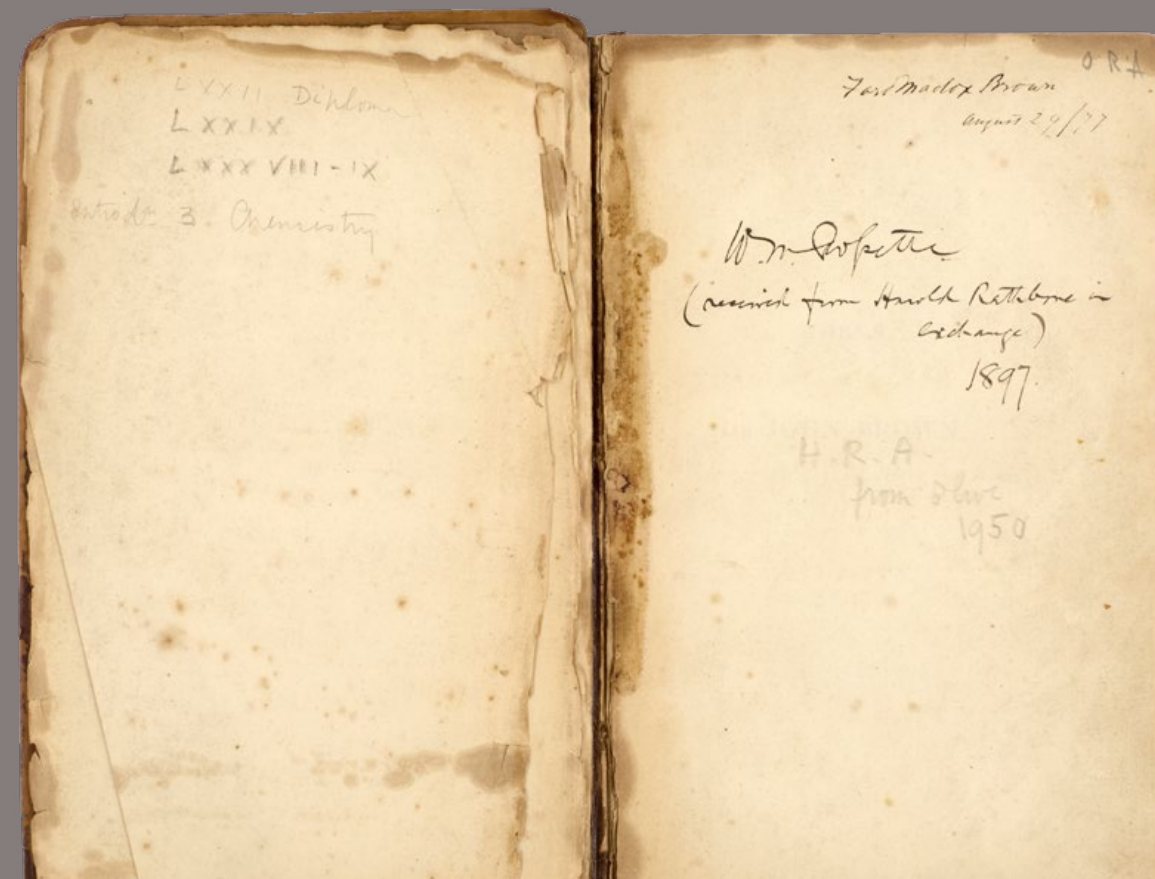 LXXII Diploma
LXXIX
LXXXVIII-IX
Introdn 3. Chemistry
O R A
Ford Madox Brown
August 29/77
Wm Rossetti
(received from Harold Rathbone in
exchange)
1897.
H. R. A.
from Olive
1950